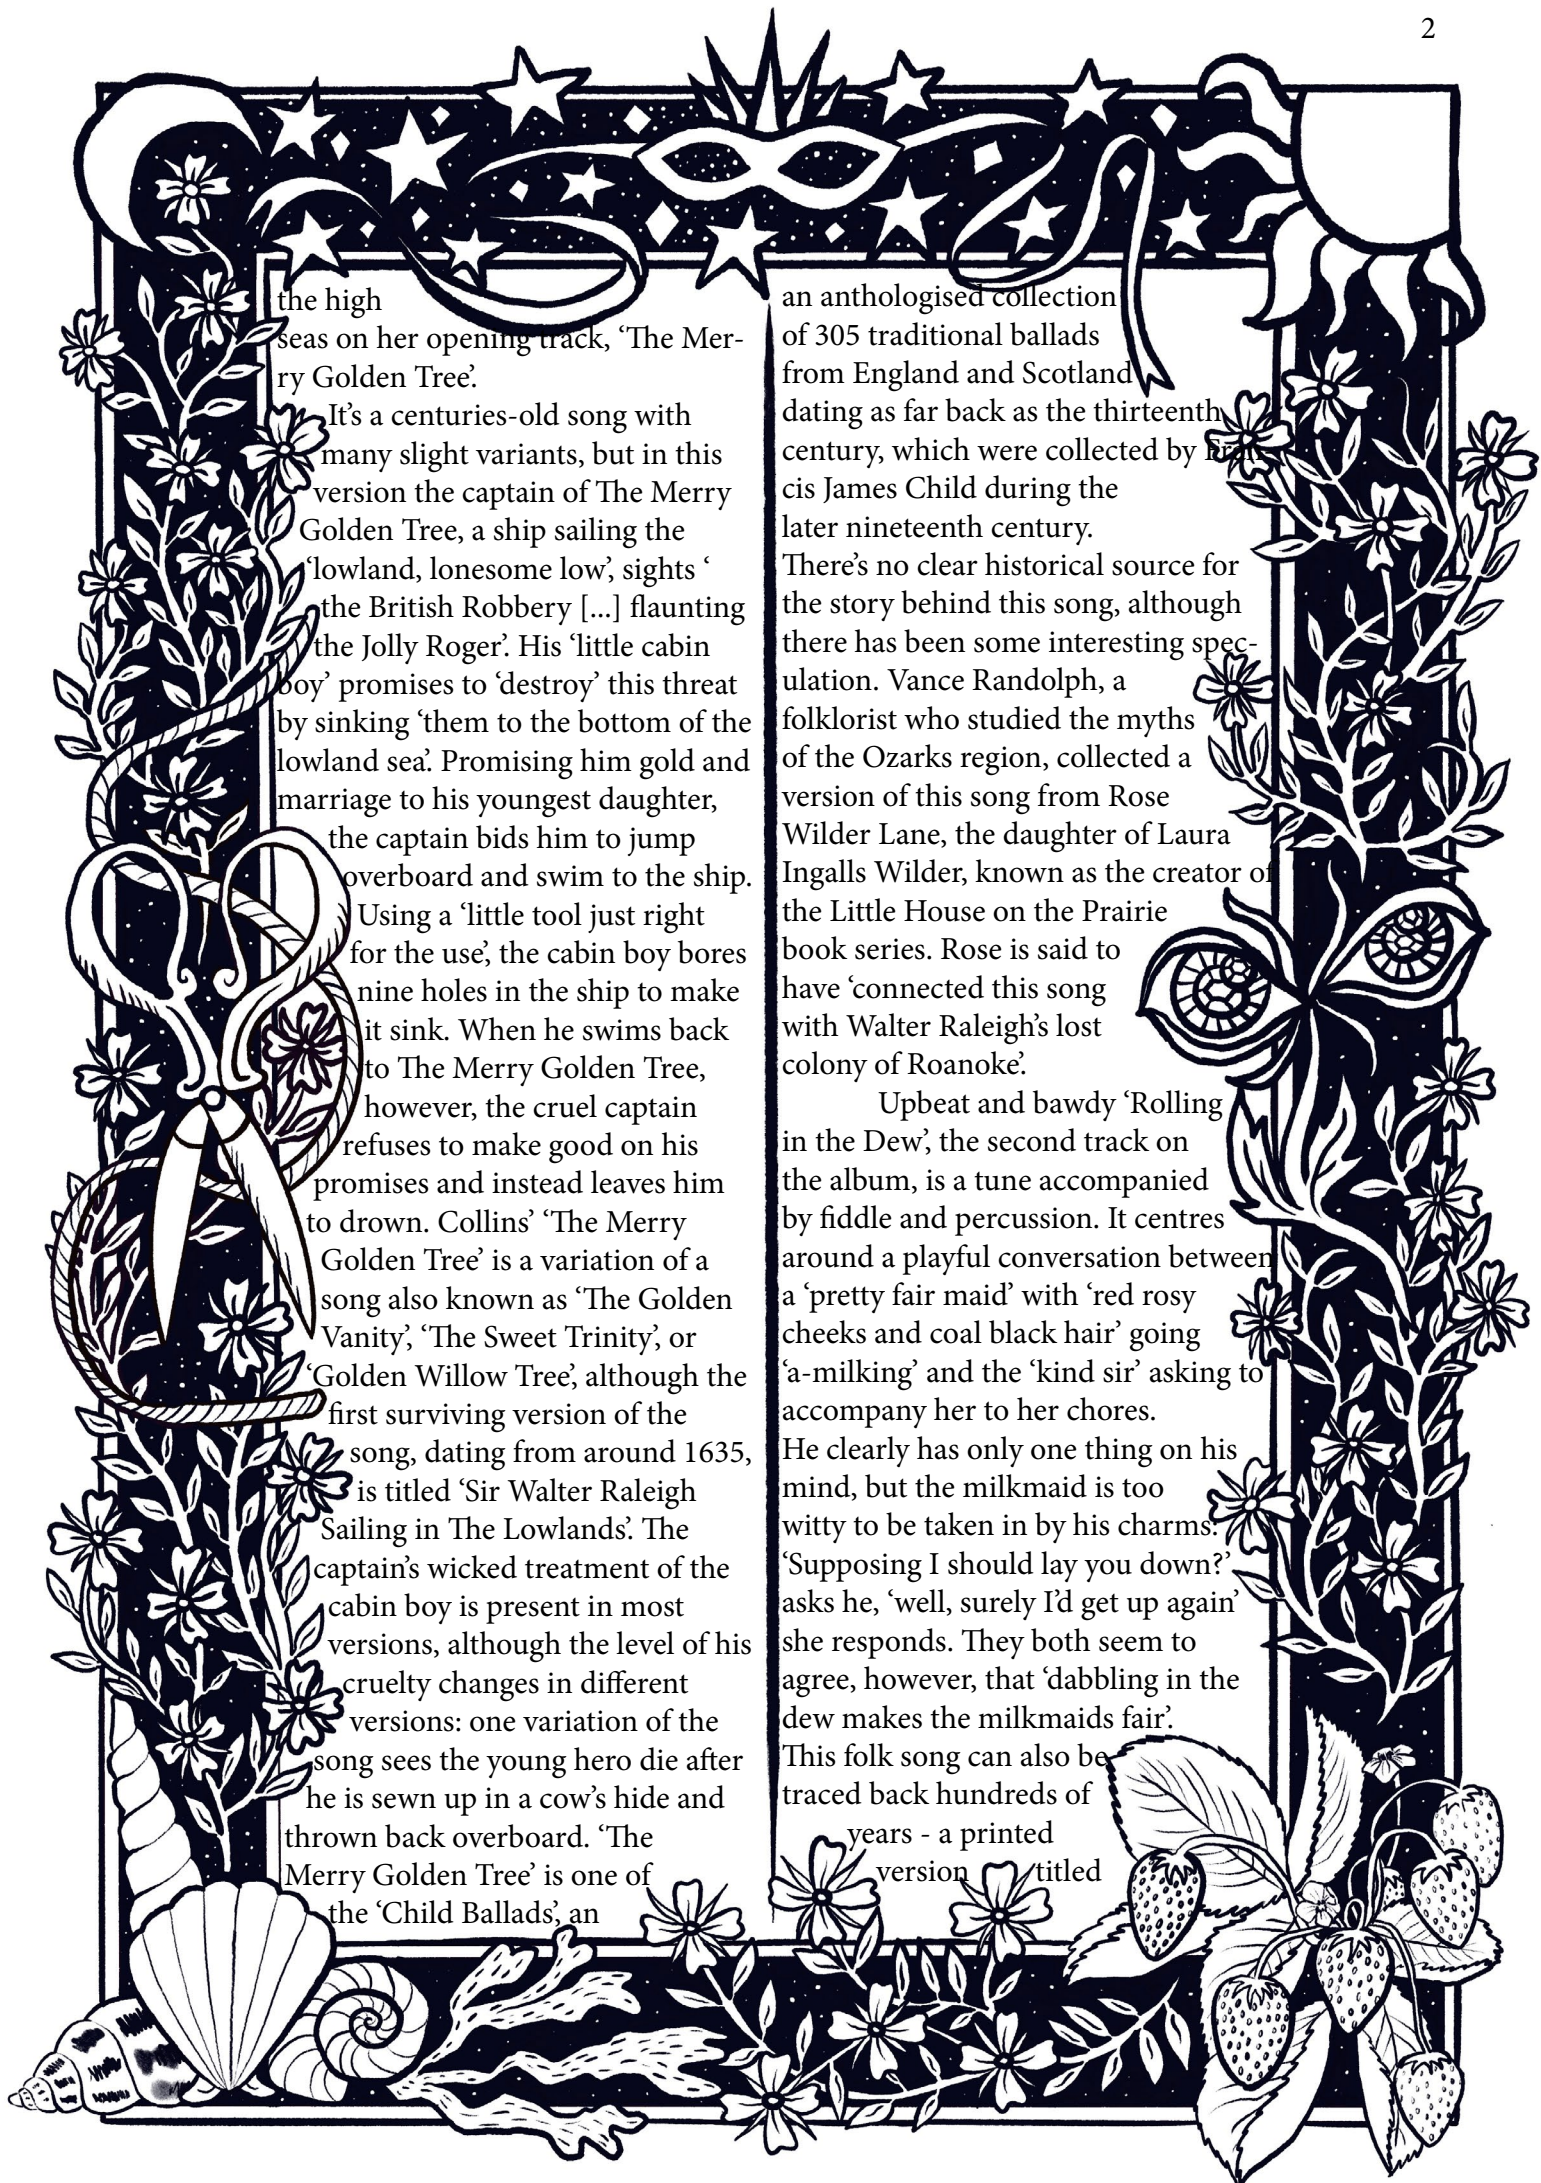 2
the high
seas on her opening track, ‘The Mer-
ry Golden Tree’.
It’s a centuries-old song with
many slight variants, but in this
version the captain of The Merry
Golden Tree, a ship sailing the
‘lowland, lonesome low’, sights ‘
the British Robbery [...] flaunting
the Jolly Roger’. His ‘little cabin
boy’ promises to ‘destroy’ this threat
by sinking ‘them to the bottom of the
lowland sea’. Promising him gold and
marriage to his youngest daughter,
the captain bids him to jump
overboard and swim to the ship.
Using a ‘little tool just right
for the use’, the cabin boy bores
nine holes in the ship to make
it sink. When he swims back
to The Merry Golden Tree,
however, the cruel captain
refuses to make good on his
promises and instead leaves him
to drown. Collins’ ‘The Merry
Golden Tree’ is a variation of a
song also known as ‘The Golden
Vanity’, ‘The Sweet Trinity’, or
‘Golden Willow Tree’, although the
first surviving version of the
song, dating from around 1635,
is titled ‘Sir Walter Raleigh
Sailing in The Lowlands’. The
captain’s wicked treatment of the
cabin boy is present in most
versions, although the level of his
cruelty changes in different
versions: one variation of the
song sees the young hero die after
he is sewn up in a cow’s hide and
thrown back overboard. ‘The
Merry Golden Tree’ is one of
the ‘Child Ballads’, an
an anthologised collection
of 305 traditional ballads
from England and Scotland
dating as far back as the thirteenth
century, which were collected by Fran-
cis James Child during the
later nineteenth century.
There’s no clear historical source for
the story behind this song, although
there has been some interesting spec-
ulation. Vance Randolph, a
folklorist who studied the myths
of the Ozarks region, collected a
version of this song from Rose
Wilder Lane, the daughter of Laura
Ingalls Wilder, known as the creator of
the Little House on the Prairie
book series. Rose is said to
have ‘connected this song
with Walter Raleigh’s lost
colony of Roanoke’.
Upbeat and bawdy ‘Rolling
in the Dew’, the second track on
the album, is a tune accompanied
by fiddle and percussion. It centres
around a playful conversation between
a ‘pretty fair maid’ with ‘red rosy
cheeks and coal black hair’ going
‘a-milking’ and the ‘kind sir’ asking to
accompany her to her chores.
He clearly has only one thing on his
mind, but the milkmaid is too
witty to be taken in by his charms:
‘Supposing I should lay you down?’
asks he, ‘well, surely I’d get up again’
she responds. They both seem to
agree, however, that ‘dabbling in the
dew makes the milkmaids fair’.
This folk song can also be
traced back hundreds of
years - a printed
version titled